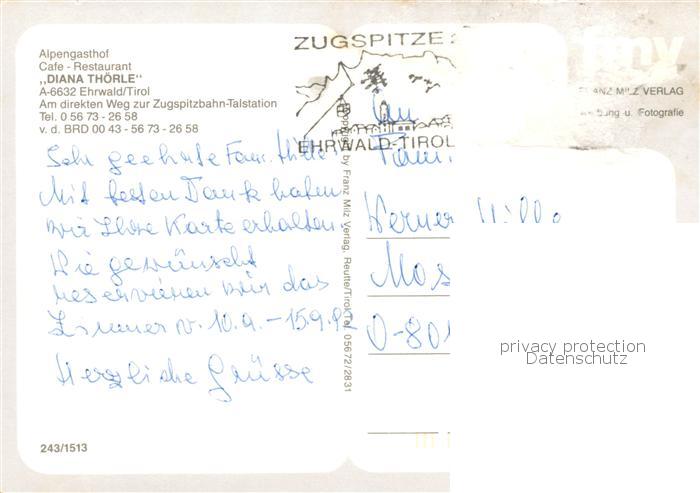 Alpengasthof
Cafe - Restaurant
„DIANA THÖRLE"
A-6632 Ehrwald/Tirol
Am direkten Weg zur Zugspitzbahn-Talstation
Tel. 0 56 73 - 26 58
v. d. BRD 00 43 - 56 73 - 26 58
ZUGSPITZE
EHRWALD-TIROL
FRANZ MILZ VERLAG
u. Fotografie
Sehr geehrte Fam.
Mit besten Dank haben
wir Ihre Karte erhalten.
Wie gewünscht
reservieren wir das
Zimmer v. 10.9.-15.9.92
Herzliche Grüsse
243/1513
by Franz Milz Verlag, Reutte/Tirol Tel. 05672/2831
An
Fam.
Werner
Mos
D-801
privacy protection
Datenschutz